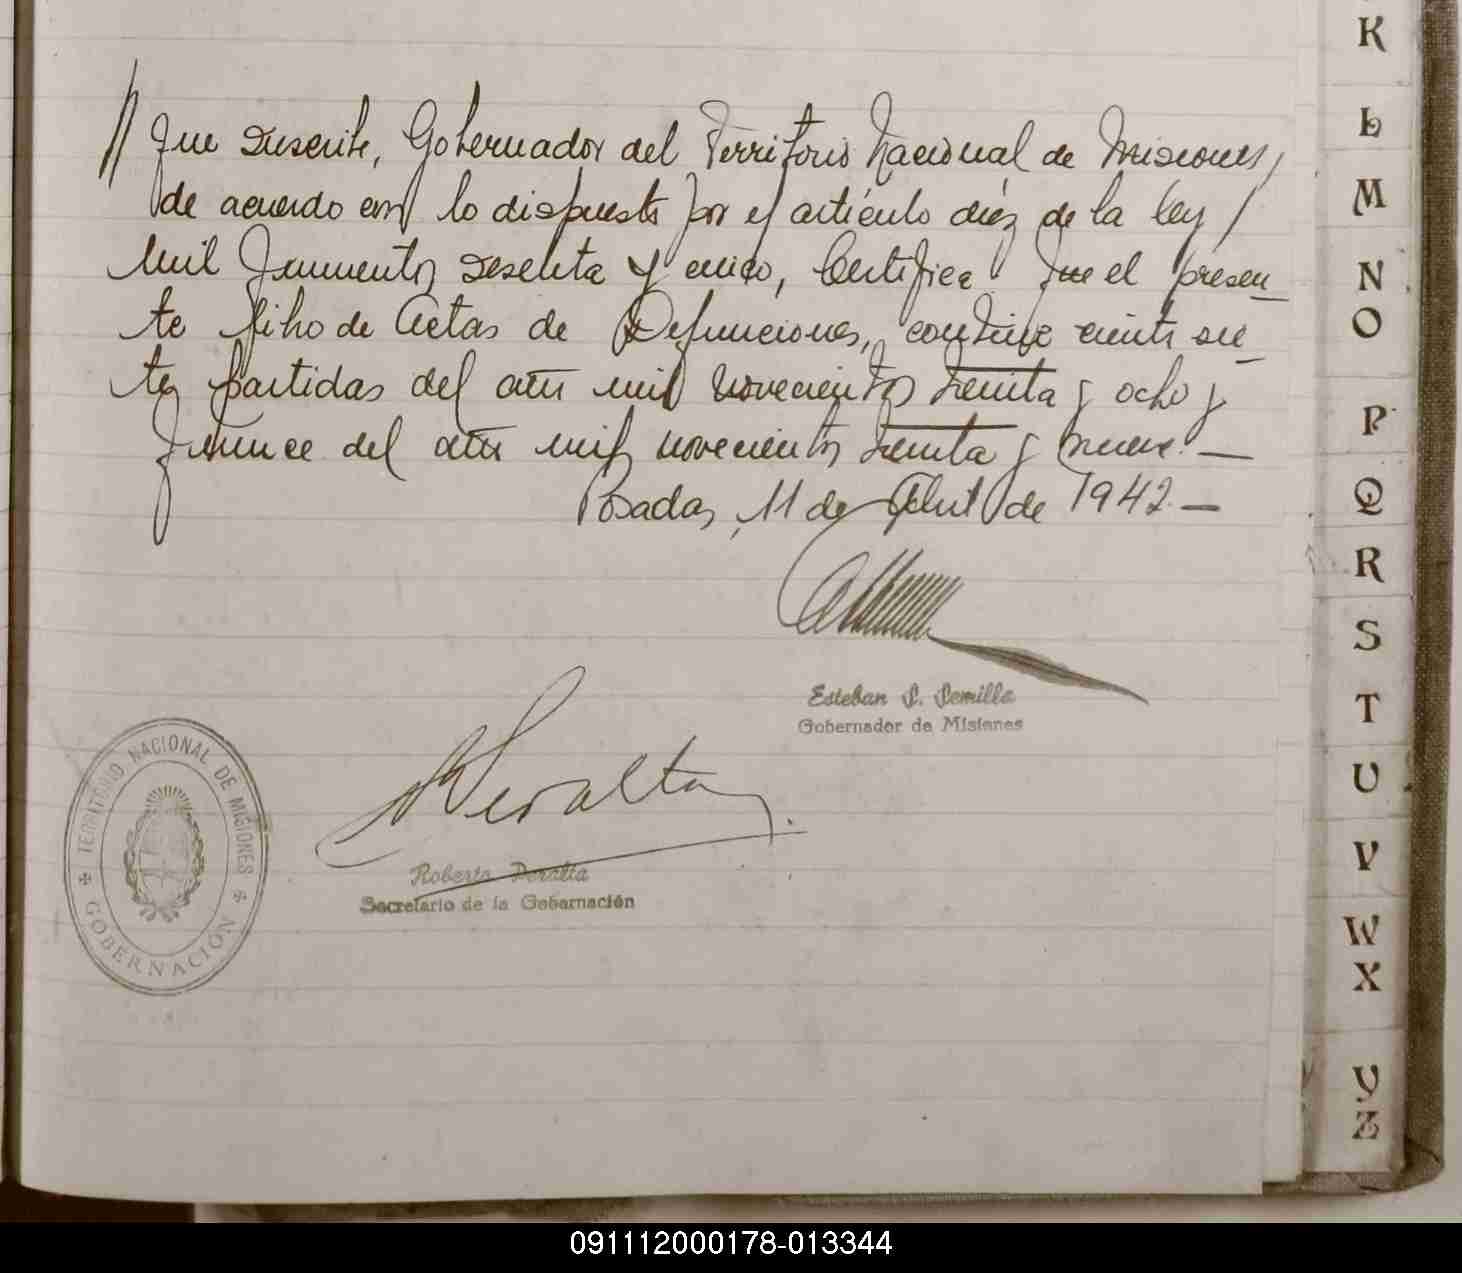 // que suscribe, Gobernador del Territorio Nacional de Misiones,
de acuerdo con lo dispuesto por el artículo diéz de la ley /
mil quinientos sesenta y cinco, Certifica que el presen-
te libro de Actas de Defunciones, contiene ciento sie-
te partidas del año mil novecientos treinta y ocho y
quince del año mil novecientos treinta y nueve. —
Posadas, 11 de Abril de 1942. —
Esteban S. Semilla
Gobernador de Misiones
Peralta
Roberto Peralta
Secretario de la Gobernación
TERRITORIO NACIONAL DE MISIONES
GOBERNACIÓN
K
L
M
N
O
P
Q
R
S
T
U
V
W
X
Y
Z
091112000178-013344